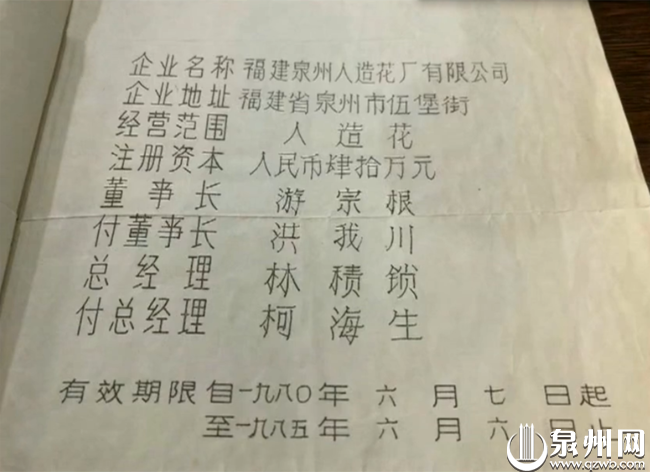 企业名称 福建泉州人造花厂有限公司
企业地址 福建省泉州市伍堡街
经营范围 人造花
注册资本 人民币肆拾万元
董事长 游宗根
付董事长 洪我川
总经理 林积锁
付总经理 柯海生
有效期限自一九八〇年 六 月 七 日起
至一九八五年 六 月 六 日止
泉州网
www.qzwb.com